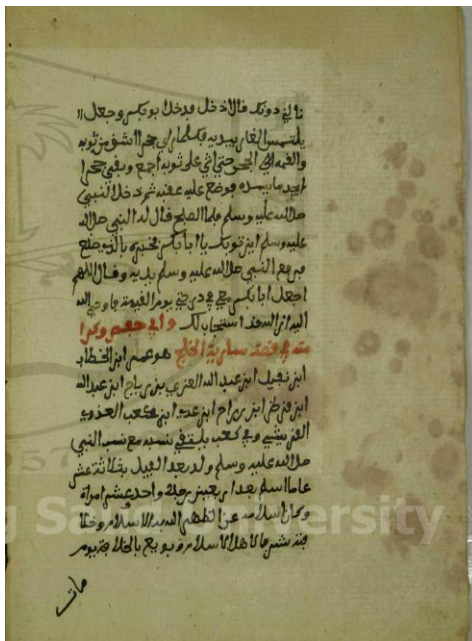 نالني دونك قال ادخل فدخل ابو بكر وجعل
يلتمس الغار بيده فكلما راى جحرا شق من ثوبه
والقمه الى الجحر حتى اتى على ثوبه اجمع وبقي جحر
فوضع عليه عقبه ثم دخل النبي
صلى الله عليه وسلم فلما اصبح قال له النبي صلى الله
عليه وسلم اين ثوبك يا ابا بكر فخبره بالذي صنع
فرفع النبي صلى الله عليه وسلم يديه وقال اللهم
اجعل ابا بكر معي في درجتي يوم القيمة فاوحى الله
اليه ان الله قد استجاب لك وابي حفص وكرا
مته في قصة سارية الخلج هو عمر ابن الخطاب
ابن نفيل ابن عبد الله العزى بن رياح ابن عبد الله
ابن قرط ابن رزاح ابن عدي ابن كعب العدوي
القريشي وفي كعب يلتقي نسبه مع نسب النبي
صلى الله عليه وسلم ولد بعد الفيل بثلاثة عشر
عاما اسلم بعد اربعين رجلا واحد عشر امراة
وكان اسلامه عزا ظهر به الاسلام
اهل الاسلام و بويع بالخلافة يوم
مات
King Saud University